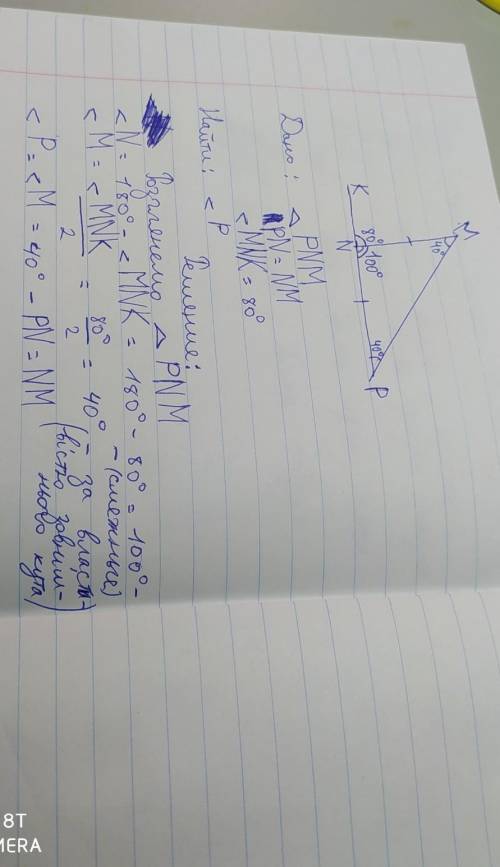 M
40°
80°
100°
40°
K
N
P
Дано: △ PNM
PN = NM
< MNK = 80°
Найти: < P
Решение:
Розглянемо △ PNM
< N = 180° - < MNK = 180° - 80° = 100° -
- (смежные)
< M = < MNK / 2 = 80° / 2 = 40° - за власти-
(вістю зовніш-
нього кута)
< P = < M = 40° - PN = NM
8T
MERA